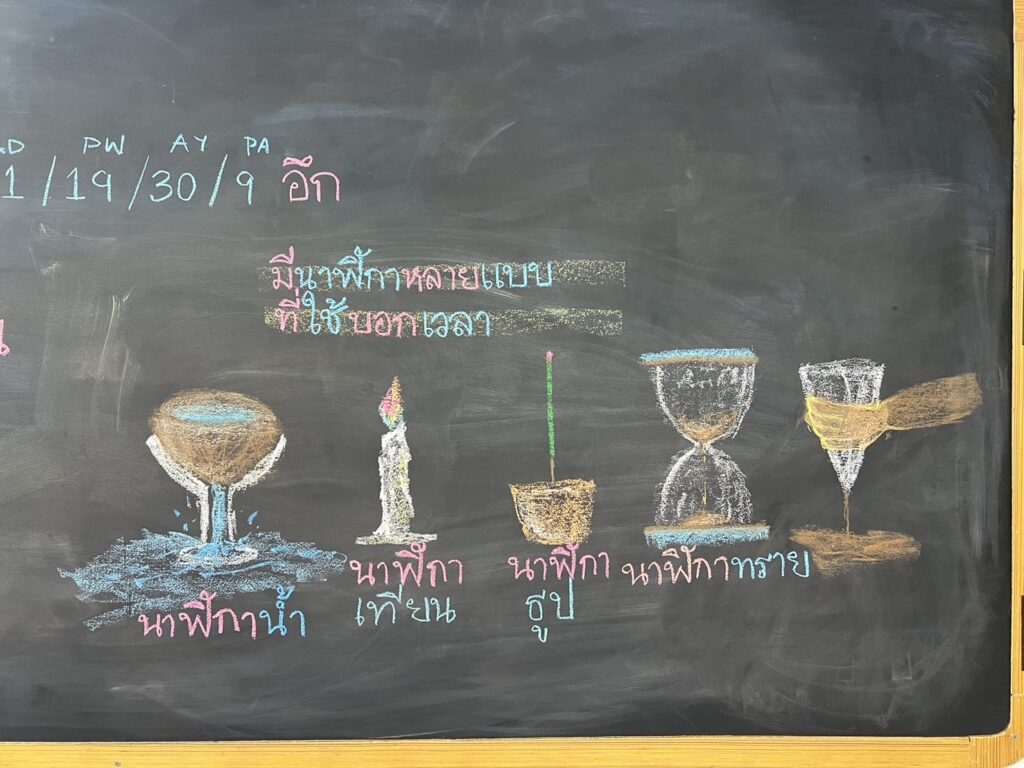 D PW AY PA
1/19/30/9 อีก
มีนาฬิกาหลายแบบ
ที่ใช้บอกเวลา
นาฬิกาน้ำ
นาฬิกา
เทียน
นาฬิกา
ธูป
นาฬิกาทราย